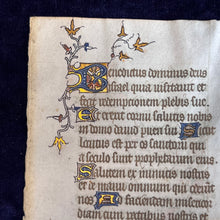 Benedictus dominus deus
israel quia uisitauit et
fecit redempcionem plebis sue.
Et erexit cornu salutis nobis
in domo dauid pueri sui S
locutus est per os sanctorum qui
a seculo sunt prophetarum eius
Salutem ex inimicis nostris
et de manu omnium qui oderūt
nos Ad faciendam misericor
diam cum patribus nostris